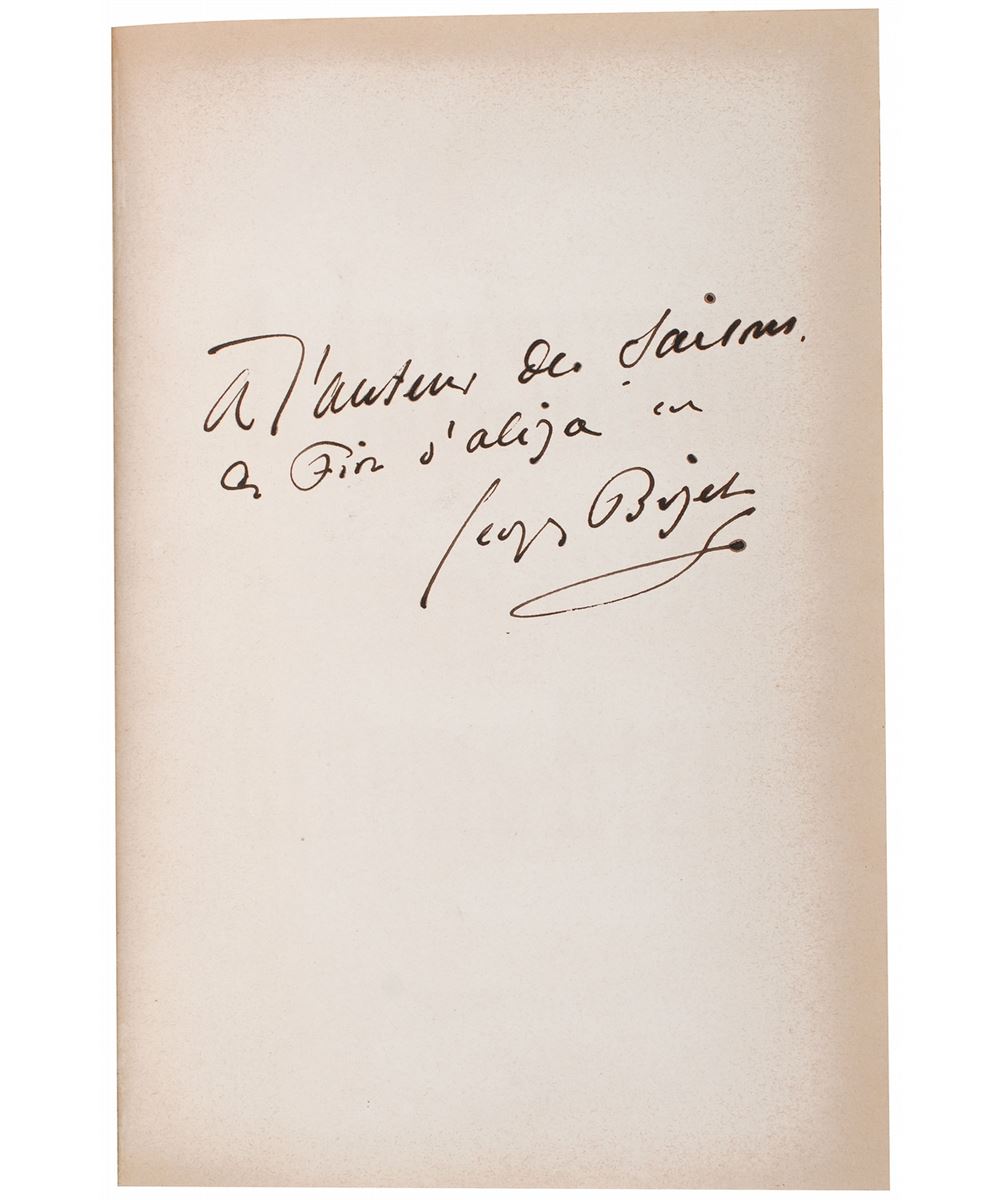 A l'auteur des Saisons.
de Fior d'aliza
Georges Bizet